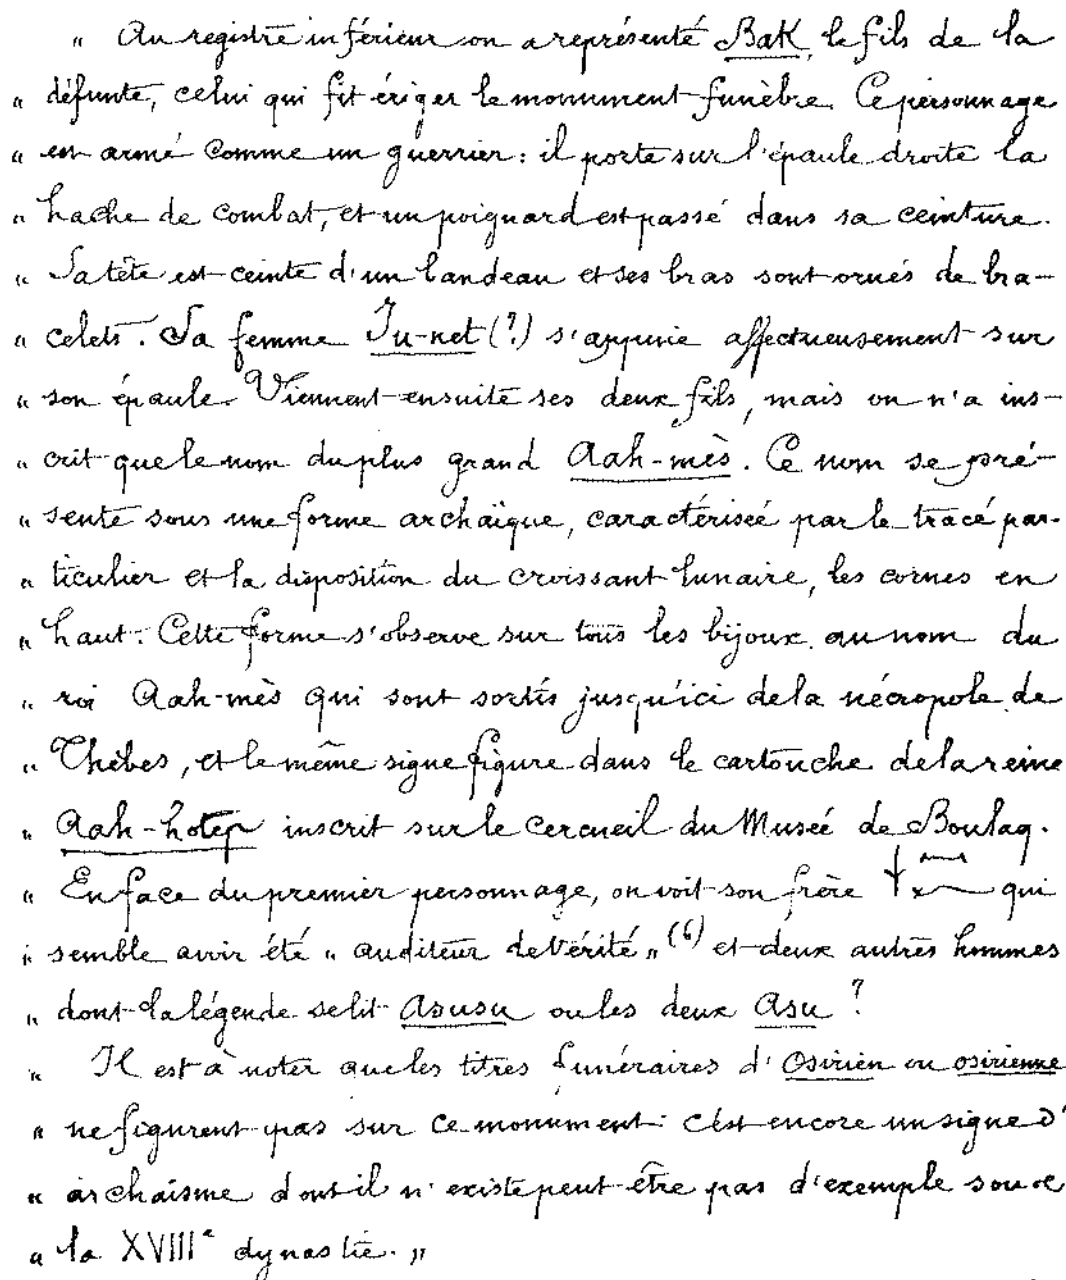 " Au registre inférieur on a représenté Bak, le fils de la
" défunte, celui qui fit ériger le monument funèbre. Ce personnage
" est armé comme un guerrier : il porte sur l'épaule droite la
" hache de combat, et un poignard est passé dans sa ceinture.
" Sa tête est ceinte d'un bandeau et ses bras sont ornés de bra-
" celets. Sa femme Iu-net (?) s'appuie affectueusement sur
" son épaule. Viennent ensuite ses deux fils, mais on n'a ins-
" crit que le nom du plus grand Aah-mès. Ce nom se pré-
" sente sous une forme archaïque, caractérisée par le tracé par-
" ticulier et la disposition du croissant lunaire, les cornes en
" haut. Cette forme s'observe sur tous les bijoux au nom du
" roi Aah-mès qui sont sortis jusqu'ici de la nécropole de
" Thèbes, et le même signe figure dans le cartouche de la reine
" Aah-hotep inscrit sur le cercueil du Musée de Boulaq.
" En face du premier personnage, on voit son frère qui
" semble avoir été " auditeur de Vérité " (6) et deux autres hommes
" dont la légende se lit Asusu ou les deux Asu ?
" Il est à noter que les titres funéraires d'Osirien ou osirienne
" ne figurent pas sur ce monument : c'est encore un signe d'
" archaïsme dont il n'existe peut-être pas d'exemple sous
" la XVIIIe dynastie. "